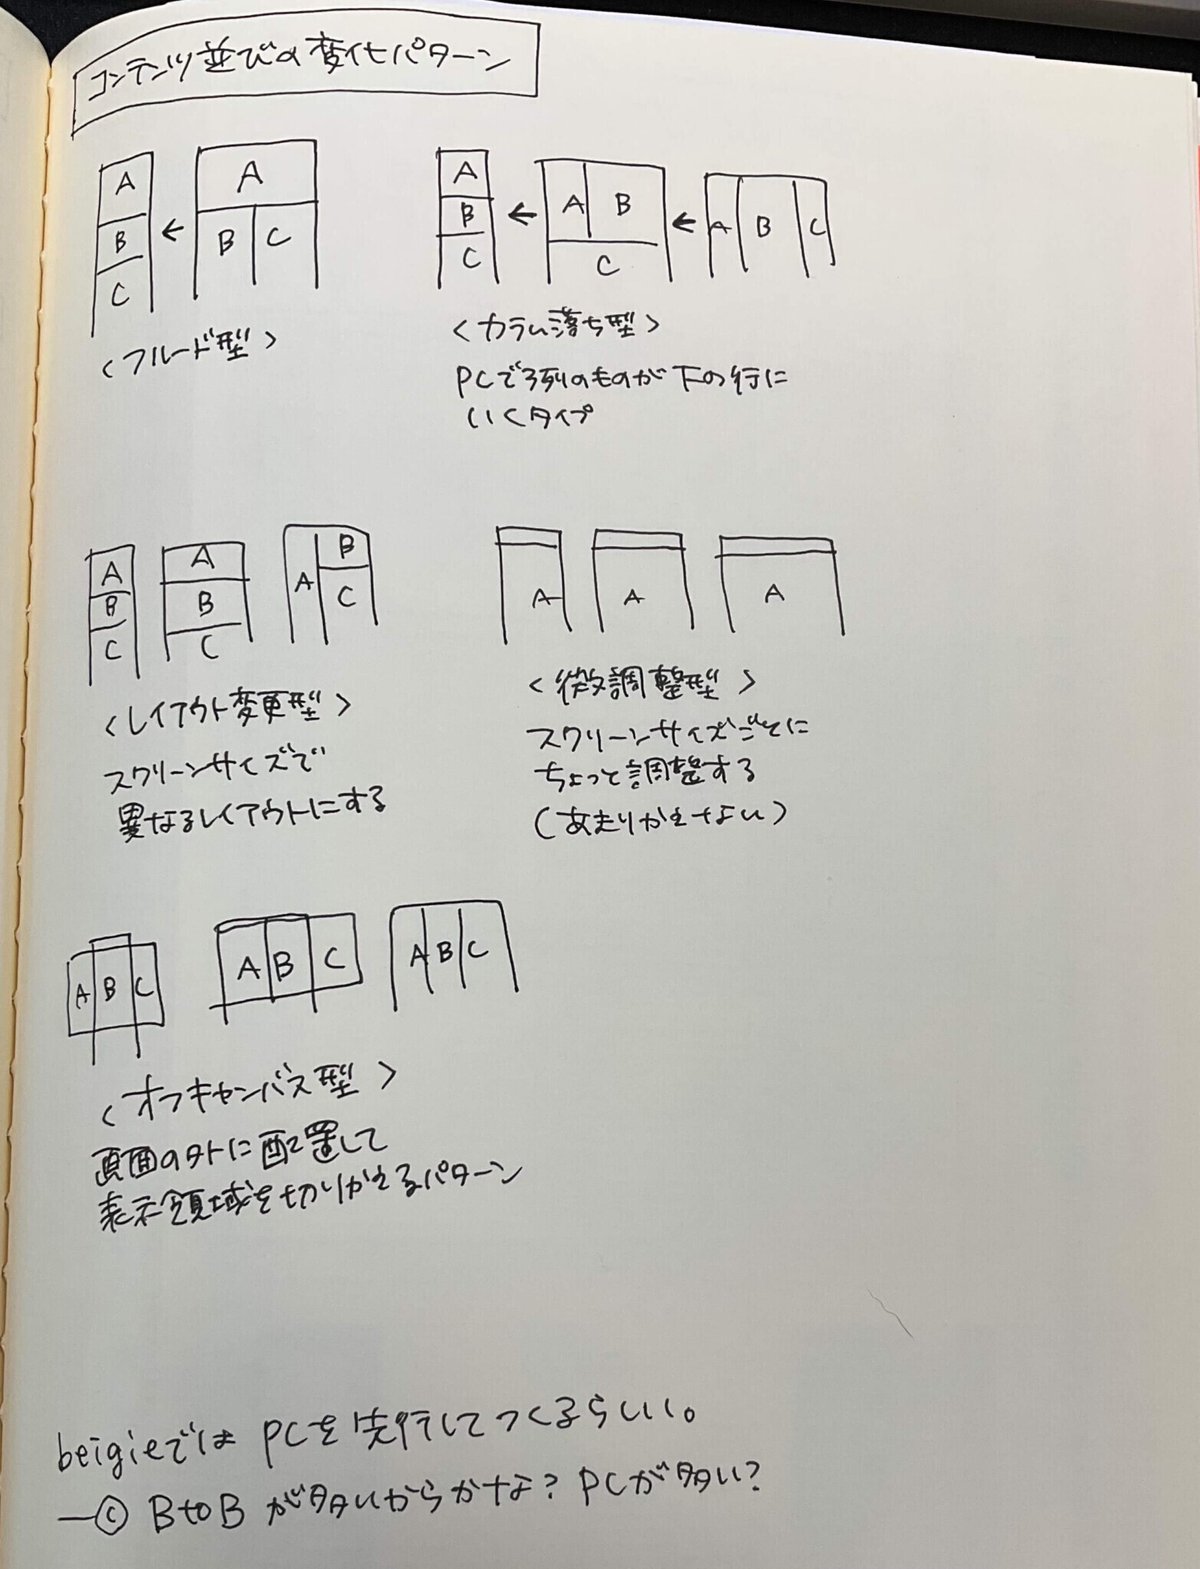 コンテンツ並びの変化パターン
A
B
C
←
A
B C
<フルード型>
A
B
C
←
A B
C
←
A B C
<カラム落ち型>
PCで3列のものが下の行に
いくタイプ
A
B
C
A
B
C
A
B
C
<レイアウト変更型>
スクリーンサイズで
異なるレイアウトにする
A
A
A
<微調整型>
スクリーンサイズごとに
ちょっと調整する
(あまりかえない)
A B C
A B C
A B C
<オフキャンバス型>
画面の外に配置して
表示領域を切りかえるパターン
beigieでは PCを先行してつくるらしい。
―© BtoB が多いからかな? PCが多い?